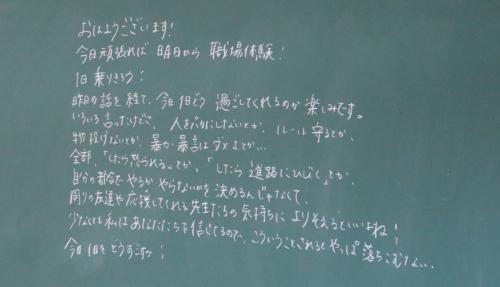 おはようございます!
今日頑張れば 明日から 職場体験!
1日 乗りきろう!
昨日の話を経て、今日1日どう 過ごしてくれるのか 楽しみです。
いろいろ言ったけど、人をバカにしないとか、ルール守るとか、
物投げないとか、暴力・暴言はダメとか…
全部、「したら怒られる。」とか、「したら 進路にひびく」とか、
自分の都合でやるか やらないかを 決めるんじゃなくて、
周りの友達や応援してくれる先生たちの 気持ちに よりそえるといいよね!
少なくとも私は あなたたちを信じてるので、こういうことされると やっぱ 落ちこむなぁ…
今日1日を どう過ごす